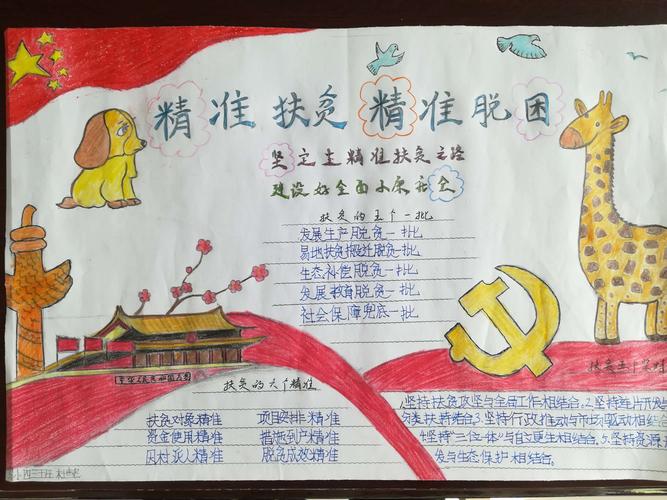 精准扶贫 精准脱困
坚定走精准扶贫之路
建设好全面小康社会
扶贫的五个一批
发展生产脱贫一批
易地扶贫搬迁脱贫一批
生态补偿脱贫一批
发展教育脱贫一批
社会保障兜底一批
中华人民共和国万岁
扶贫的六个精准
扶贫对象精准 项目安排精准
资金使用精准 措施到户精准
因村派人精准 脱贫成效精准
扶贫五个坚持
1.坚持扶贫攻坚与全局工作相结合。2.坚持连片开发与
扶持结合3.坚持行政推动与市场驱动相结合
4.坚持“三位一体”与自立更生相结合.5.坚持资源开
发与生态保护相结合。